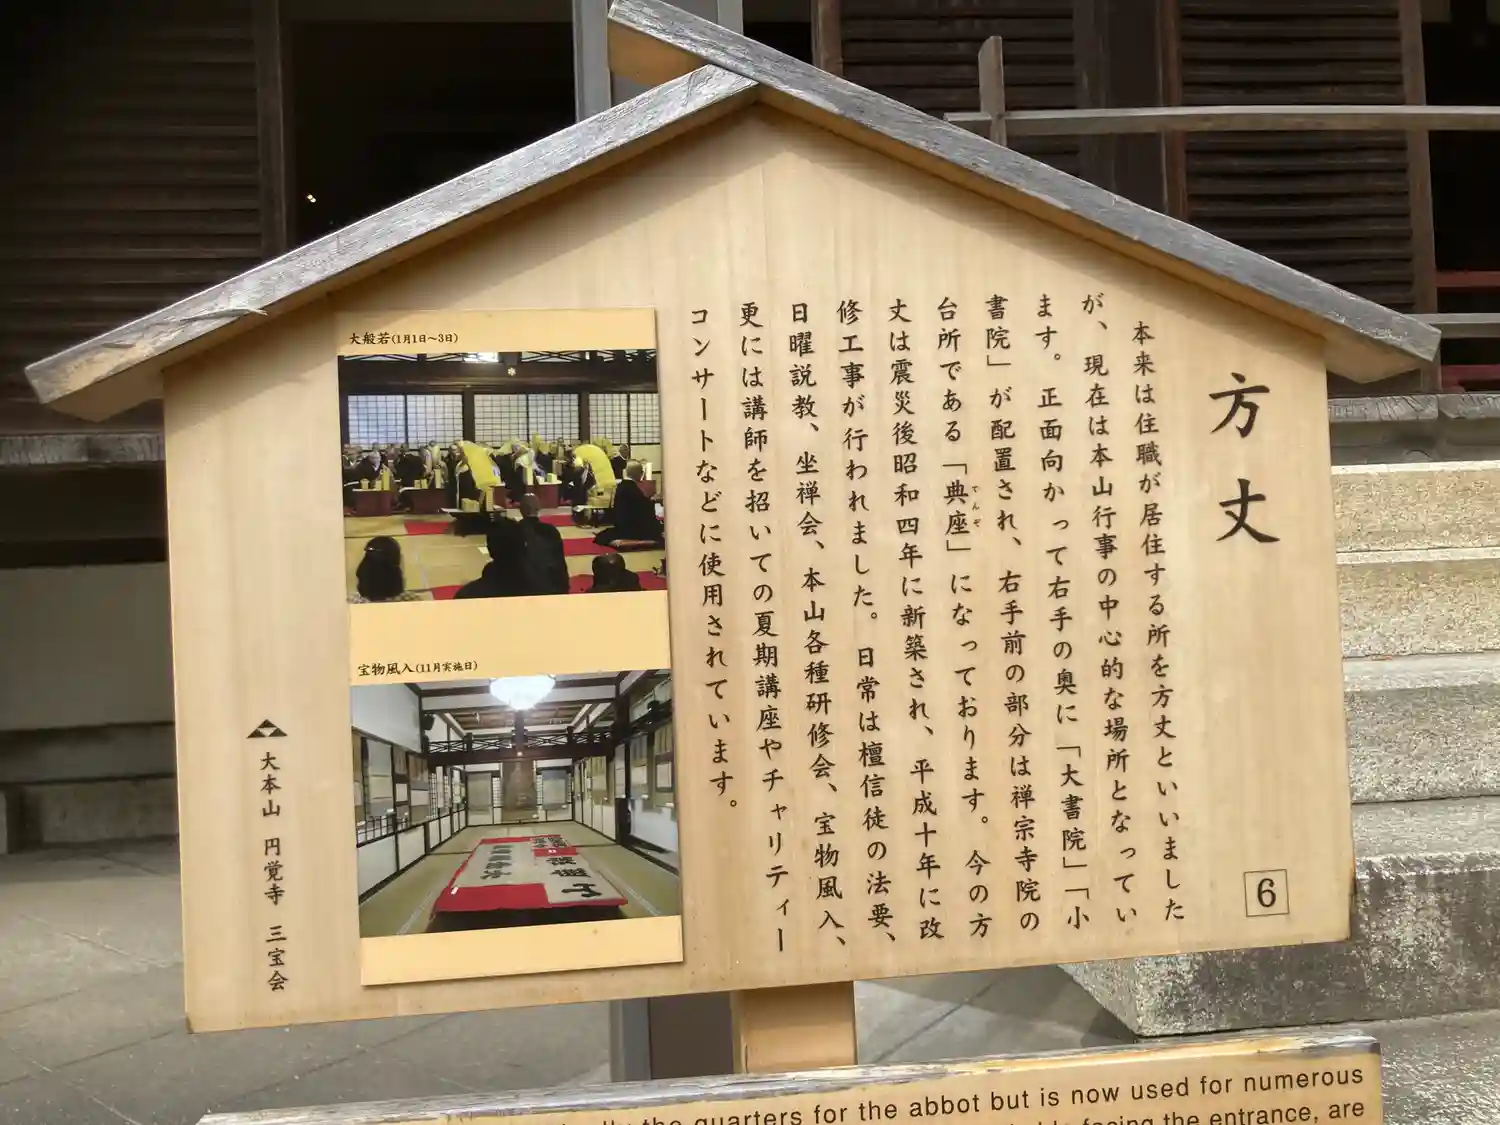 方丈
6
本来は住職が居住する所を方丈といいました
が、現在は本山行事の中心的な場所となってい
ます。正面向かって右手の奥に「大書院」「小
書院」が配置され、右手前の部分は禅宗寺院の
台所である「典座」になっております。今の方
てんぞ
丈は震災後昭和四年に新築され、平成十年に改
修工事が行われました。日常は檀信徒の法要、
日曜説教、坐禅会、本山各種研修会、宝物風入、
更には講師を招いての夏期講座やチャリティー
コンサートなどに使用されています。
大般若(1月1日〜3日)
宝物風入(11月実施日)
大本山 円覚寺 三宝会
the quarters for the abbot but is now used for numerous
facing the entrance, are